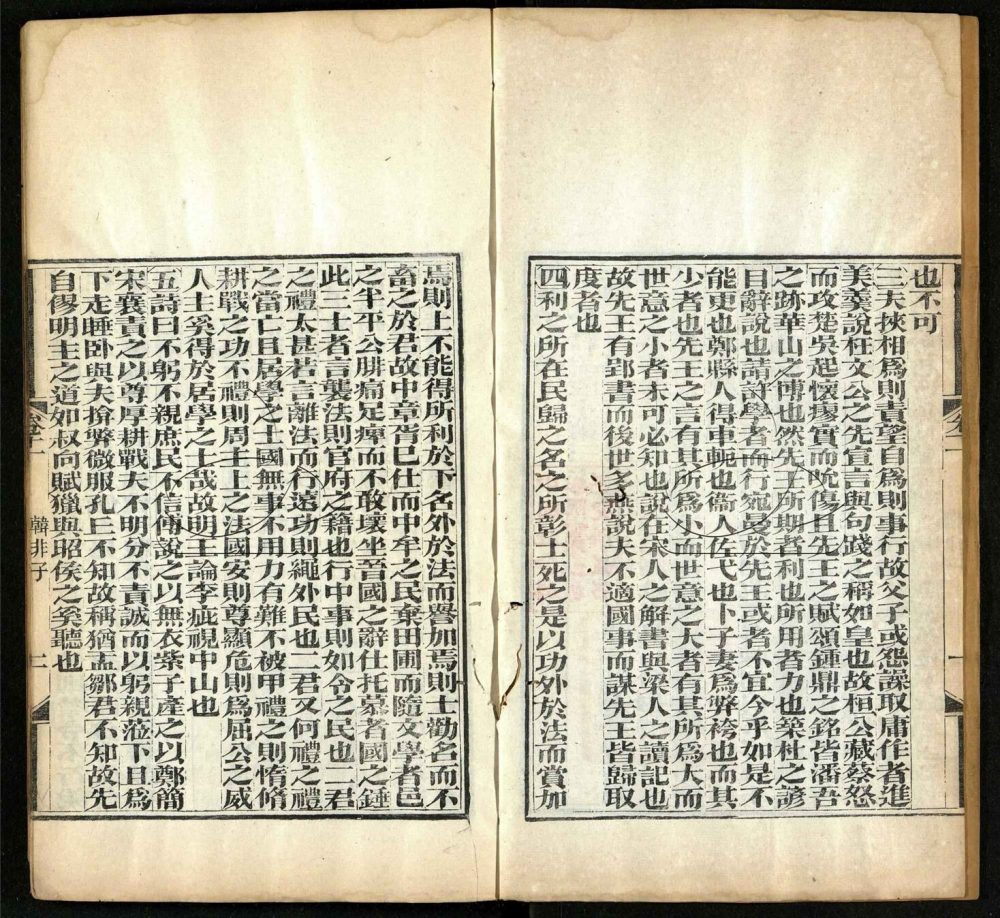 也不可
三夫挾相爲則責望自爲則事行故父子或怨譟取庸作者進
美羹說在文公之先宣言與句踐之稱如皇也故桓公藏蔡怒
而攻楚吳起懷瘳實而吮傷且先王之賦頌鍾鼎之銘皆潘吾
之跡華山之博也然先王所期者利也所用者力也築杜之諺
目辭說也請許學者而行宛曼於先王或者不宜今乎如是不
能更也鄭縣人得車軛也衞人佐弋也卜子妻爲弊袴也而其
少者也先王之言有其所爲小而世意之大者有其所爲大而
世意之小者未可必知也說在宋人之解書與梁人之讀記也
故先王有郢書而後世多燕說夫不適國事而謀先王皆歸取
度者也
四利之所在民歸之名之所彰士死之是以功外於法而賞加
焉則上不能得所利於下名外於法而譽加焉則士勸名而不
畜之於君故中章胥已仕而中牟之民棄田圃而隨文學者邑
之半平公腓痛足痺而不敢壞坐晉國之辭仕托慕者國之錘
此三士者言襲法則官府之籍也行中事則如令之民也二君
之禮太甚若言離法而行遠功則繩外民也二君又何禮之禮
之當亡且居學之士國無事不用力有難不被甲禮之則惰脩
耕戰之功不禮則周主上之法國安則尊顯危則爲屈公之威
人主奚得於居學之士哉故明王論李疵視中山也
五詩曰不躬不親庶民不信傅說之以無衣紫子產之以鄭簡
宋襄責之以尊厚耕戰夫不明分不責誠而以躬親蒞下且爲
下走睡卧與夫揜弊微服孔丘不知故稱猶盂鄒君不知故先
自僇明主之道如叔向賦獵與昭侯之奚聽也
韓非子